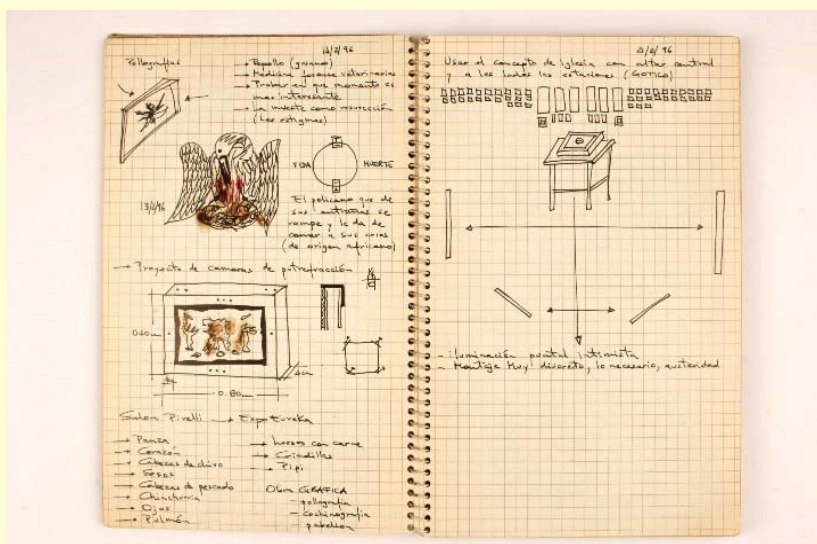 12/2/96
Pollografías
→ Repollo (gusano)
→ Medicina forense veterinarios
→ Probar en que momento es
mas interesante
→ La muerte como resurrección
(Los estigmas)
VIDA
MUERTE
13/2/96
El pelicano que de
sus entrañas se
rompe y le da de
comer a sus crias
(de origen africano)
→ Proyecto de camaras de putrefracción
0.60
0.80
Salon Pirelli → Expo Eureka
→ Panza
→ Corazón
→ Cabezas de chivo
→ Sesos
→ Cabezas de pescado
→ Chinchurria
→ Ojos
→ Pulmón
→ huesos con carne
→ Criadillas
→ Pipi
Obra GRAFICA
- pollografia
- cochinografia
- pabellon
21/2/96
Usar el concepto de iglesia con altar central
y a los lados las estaciones (GOTICO)
- iluminación puntal intimista
- Montaje Muy discreto, lo necesario, austeridad